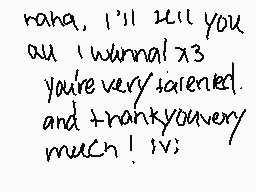 haha, I'll tell you
all I wanna! x3
you're very talented.
and thank you very
much! :v: